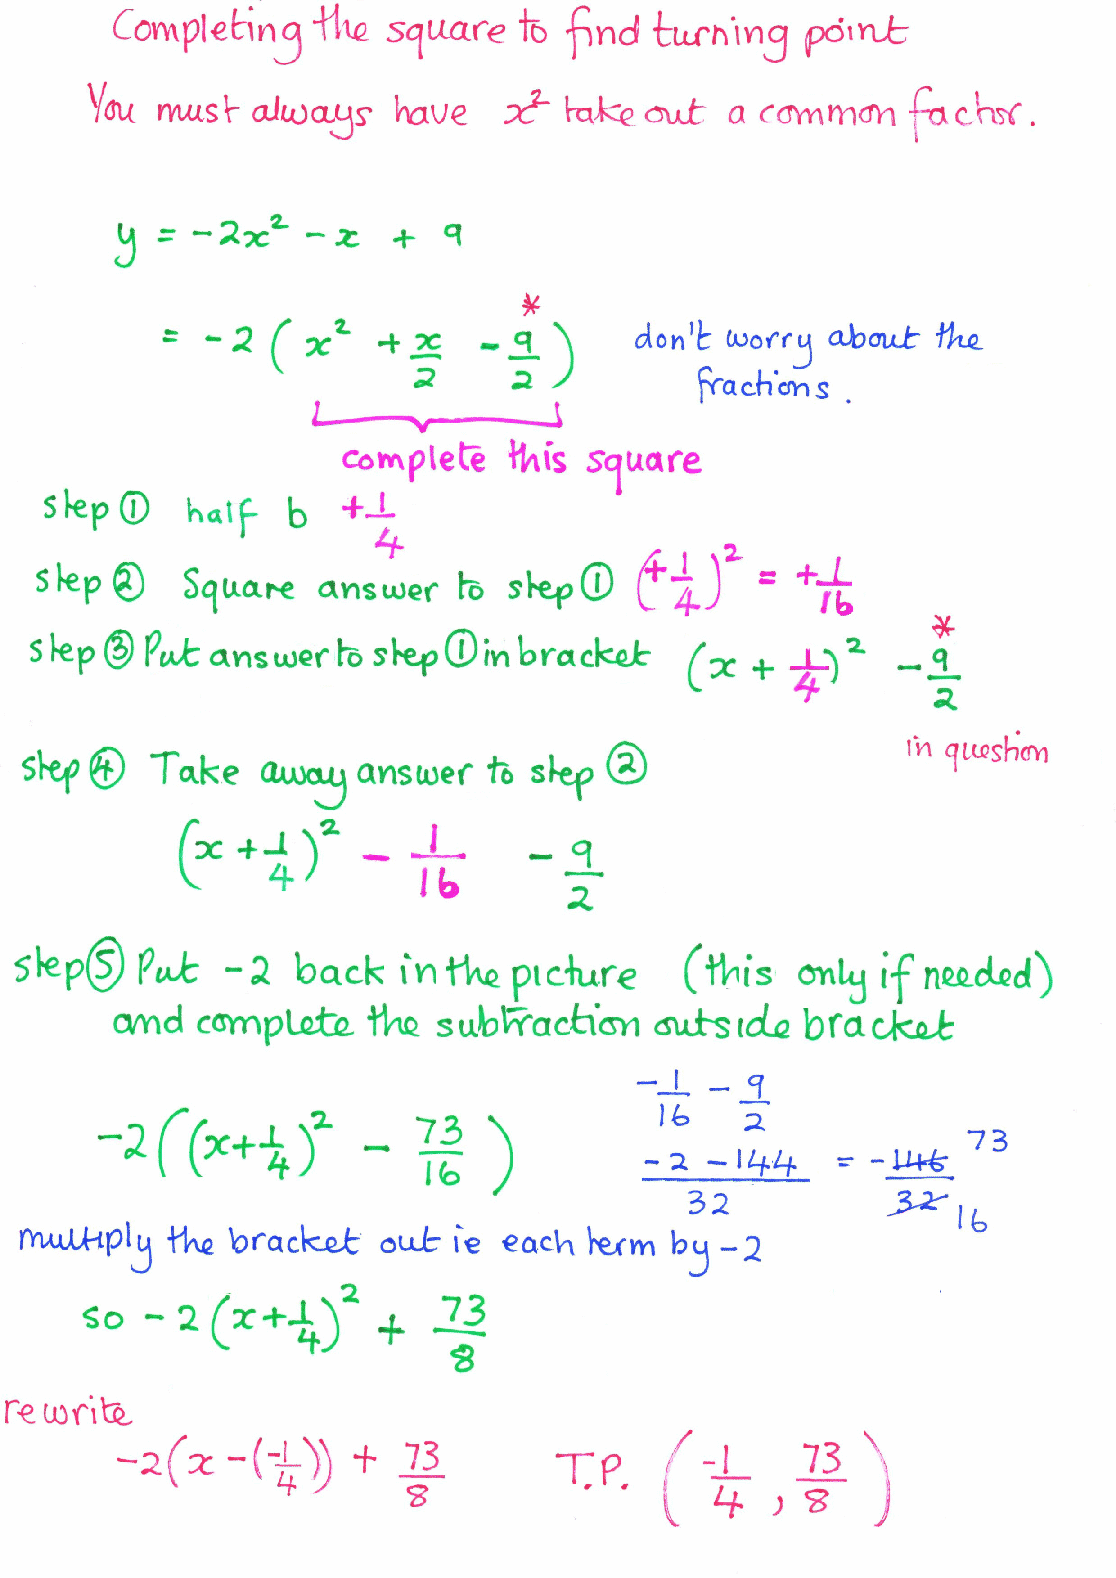 Completing the square to find turning point
You must always have x² take out a common factor.
y = -2x² - x + 9
*
= -2(x² + x/2 - 9/2) don't worry about the
fractions.
complete this square
step ① half b +1/4
step ② Square answer to step ① (+1/4)² = +1/16
*
step ③ Put answer to step ① in bracket (x + 1/4)² - 9/2
in question
step ④ Take away answer to step ②
(x + 1/4)² - 1/16 - 9/2
step ⑤ Put -2 back in the picture (this only if needed)
and complete the subtraction outside bracket
-1/16 - 9/2
-2((x+1/4)² - 73/16)
(-2 - 144)/32 = -146/32 73/16
multiply the bracket out ie each term by -2
so -2(x+1/4)² + 73/8
rewrite
-2(x-(-1/4)) + 73/8 T.P. (-1/4, 73/8)